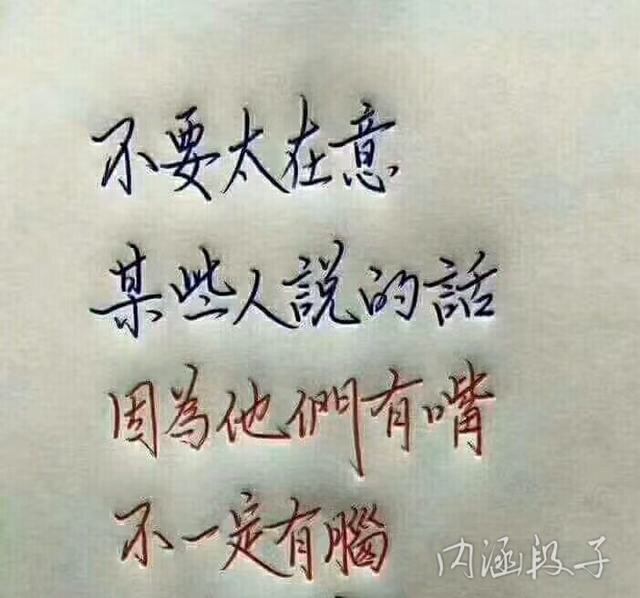 不要太在意
某些人說的話
因為他們有嘴
不一定有腦
内涵段子